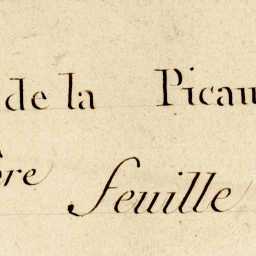 de la Picau
ère feuille